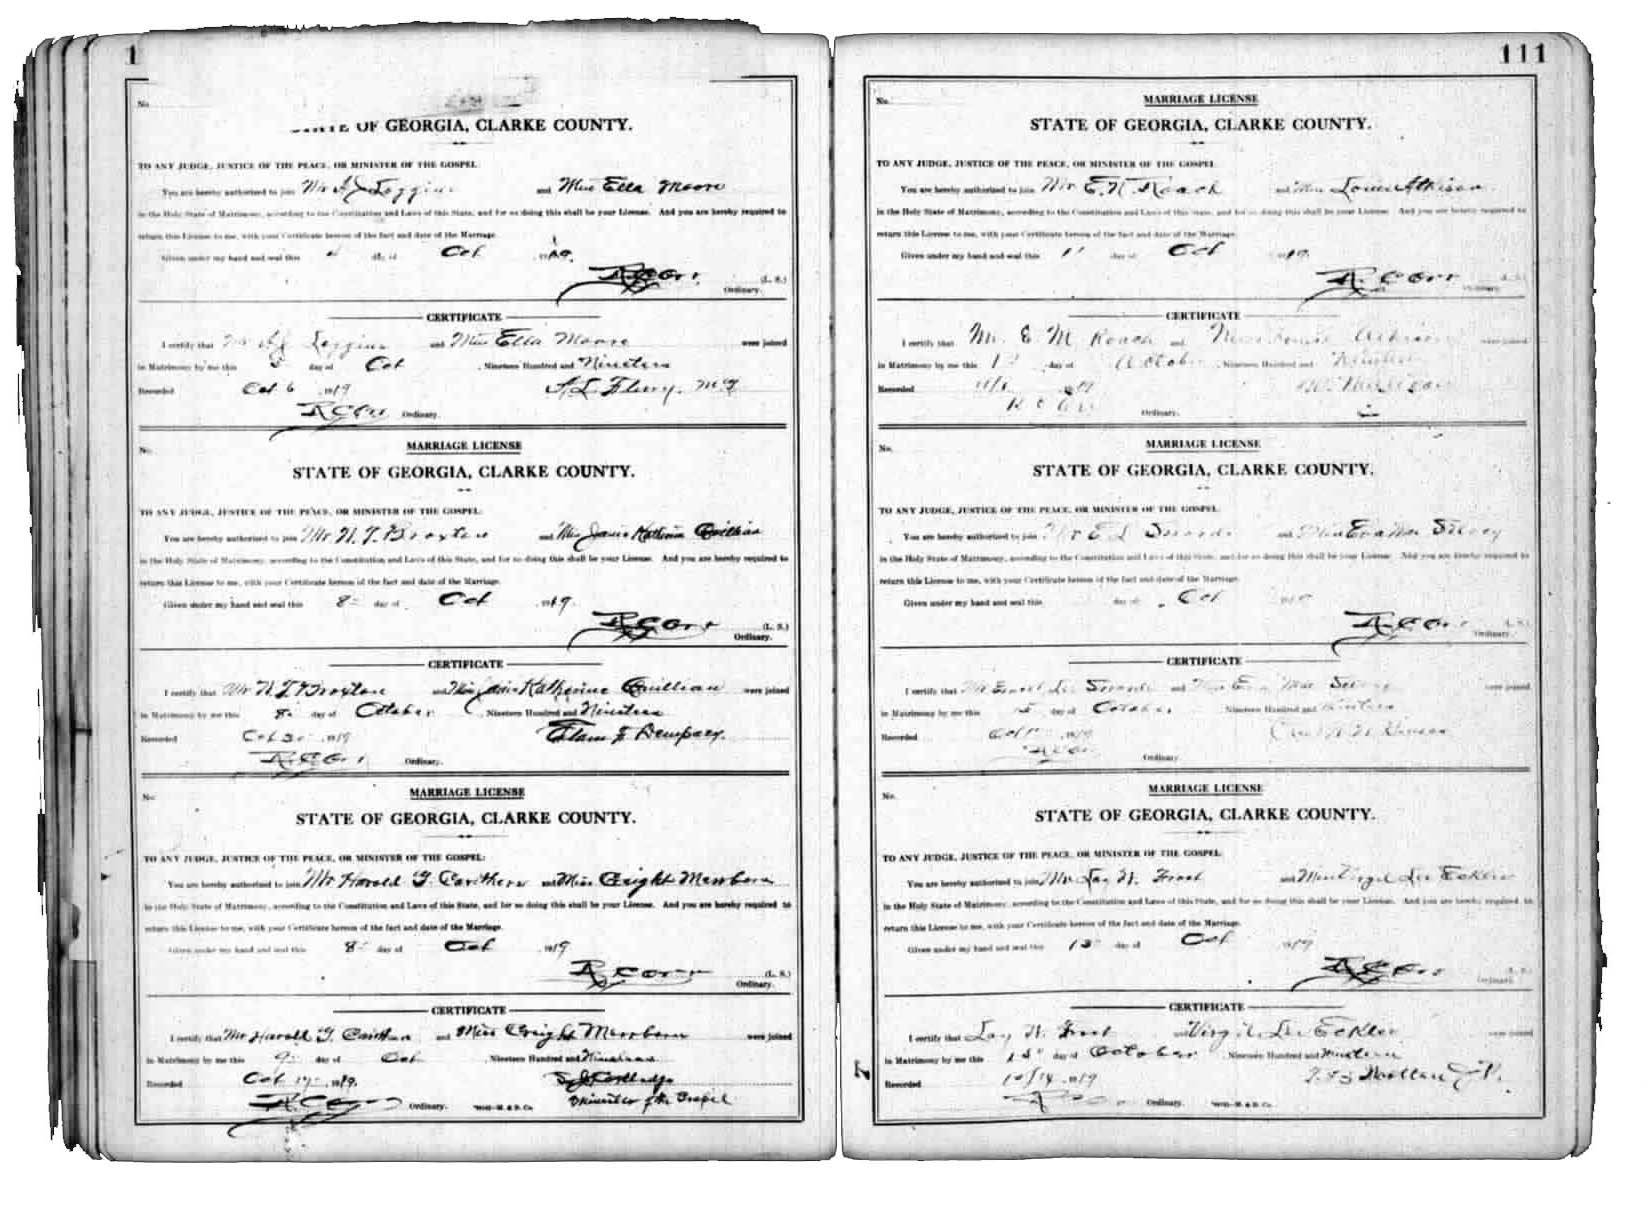 1
No.
OF GEORGIA, CLARKE COUNTY.
TO ANY JUDGE, JUSTICE OF THE PEACE, OR MINISTER OF THE GOSPEL:
You are hereby authorized to join Mr A J Loggins and Miss Ella Moore
in the Holy State of Matrimony, according to the Constitution and Laws of this State, and for so doing this shall be your License. And you are hereby required to
return this License to me, with your Certificate hereon of the fact and date of the Marriage.
Given under my hand and seal this day of Oct 1919.
R C Orr (L. S.)
Ordinary.
CERTIFICATE
I certify that Mr A J Loggins and Miss Ella Moore were joined
in Matrimony by me this day of Oct , Nineteen Hundred and Nineteen
Recorded Oct 6 1919
R C Orr Ordinary.
No.
MARRIAGE LICENSE
STATE OF GEORGIA, CLARKE COUNTY.
TO ANY JUDGE, JUSTICE OF THE PEACE, OR MINISTER OF THE GOSPEL:
You are hereby authorized to join Mr Broxton and Miss Janie Katherine Quillian
in the Holy State of Matrimony, according to the Constitution and Laws of this State, and for so doing this shall be your License. And you are hereby required to
return this License to me, with your Certificate hereon of the fact and date of the Marriage.
Given under my hand and seal this 8 day of Oct 1919.
R C Orr (L. S.)
Ordinary.
CERTIFICATE
I certify that Mr Broxton and Miss Janie Katherine Quillian were joined
in Matrimony by me this 8 day of October , Nineteen Hundred and Nineteen
Recorded Oct 1919 Elam F Dempsey.
R C Orr Ordinary.
No.
MARRIAGE LICENSE
STATE OF GEORGIA, CLARKE COUNTY.
TO ANY JUDGE, JUSTICE OF THE PEACE, OR MINISTER OF THE GOSPEL:
You are hereby authorized to join Mr Harold G. Carithers and Miss Creight Mewborn
in the Holy State of Matrimony, according to the Constitution and Laws of this State, and for so doing this shall be your License. And you are hereby required to
return this License to me, with your Certificate hereon of the fact and date of the Marriage.
Given under my hand and seal this 8 day of Oct 1919
R C Orr (L. S.)
Ordinary.
CERTIFICATE
I certify that Mr Harold G Carithers and Miss Creight Mewborn were joined
in Matrimony by me this 9 day of Oct , Nineteen Hundred and Nineteen
Recorded Oct 17 1919.
R C Orr Ordinary. Minister of the Gospel
111
No.
MARRIAGE LICENSE
STATE OF GEORGIA, CLARKE COUNTY.
TO ANY JUDGE, JUSTICE OF THE PEACE, OR MINISTER OF THE GOSPEL:
You are hereby authorized to join Mr E. M. Roach and Miss Louise Atkison
in the Holy State of Matrimony, according to the Constitution and Laws of this State, and for so doing this shall be your License. And you are hereby required to
return this License to me, with your Certificate hereon of the fact and date of the Marriage.
Given under my hand and seal this day of Oct 1919.
R. C Orr (L. S.)
Ordinary.
CERTIFICATE
I certify that Mr. E M Roach and Miss Louise were joined
in Matrimony by me this day of October , Nineteen Hundred and Nineteen
Recorded 1919
R C Orr Ordinary.
No.
MARRIAGE LICENSE
STATE OF GEORGIA, CLARKE COUNTY.
TO ANY JUDGE, JUSTICE OF THE PEACE, OR MINISTER OF THE GOSPEL:
You are hereby authorized to join Mr E L and Miss Eva Mae Silvey
in the Holy State of Matrimony, according to the Constitution and Laws of this State, and for so doing this shall be your License. And you are hereby required to
return this License to me, with your Certificate hereon of the fact and date of the Marriage.
Given under my hand and seal this day of Oct
R C Orr (L. S.)
Ordinary.
CERTIFICATE
I certify that Mr Ernest Lee and Miss Eva Mae Silvey were joined
in Matrimony by me this day of October Nineteen Hundred and Nineteen
Recorded Oct 1919
R C Orr Ordinary.
No.
MARRIAGE LICENSE
STATE OF GEORGIA, CLARKE COUNTY.
TO ANY JUDGE, JUSTICE OF THE PEACE, OR MINISTER OF THE GOSPEL:
You are hereby authorized to join Mr Loy W. Frost and Miss Virgil Lee Eckles
in the Holy State of Matrimony, according to the Constitution and Laws of this State, and for so doing this shall be your License. And you are hereby required to
return this License to me, with your Certificate hereon of the fact and date of the Marriage.
Given under my hand and seal this 13 day of Oct 1919
R C Orr (L. S.)
Ordinary.
CERTIFICATE
I certify that Loy W. Frost and Virgil Lee Eckles were joined
in Matrimony by me this 13 day of October , Nineteen Hundred and Nineteen
Recorded 10/14 1919
R C Orr Ordinary.